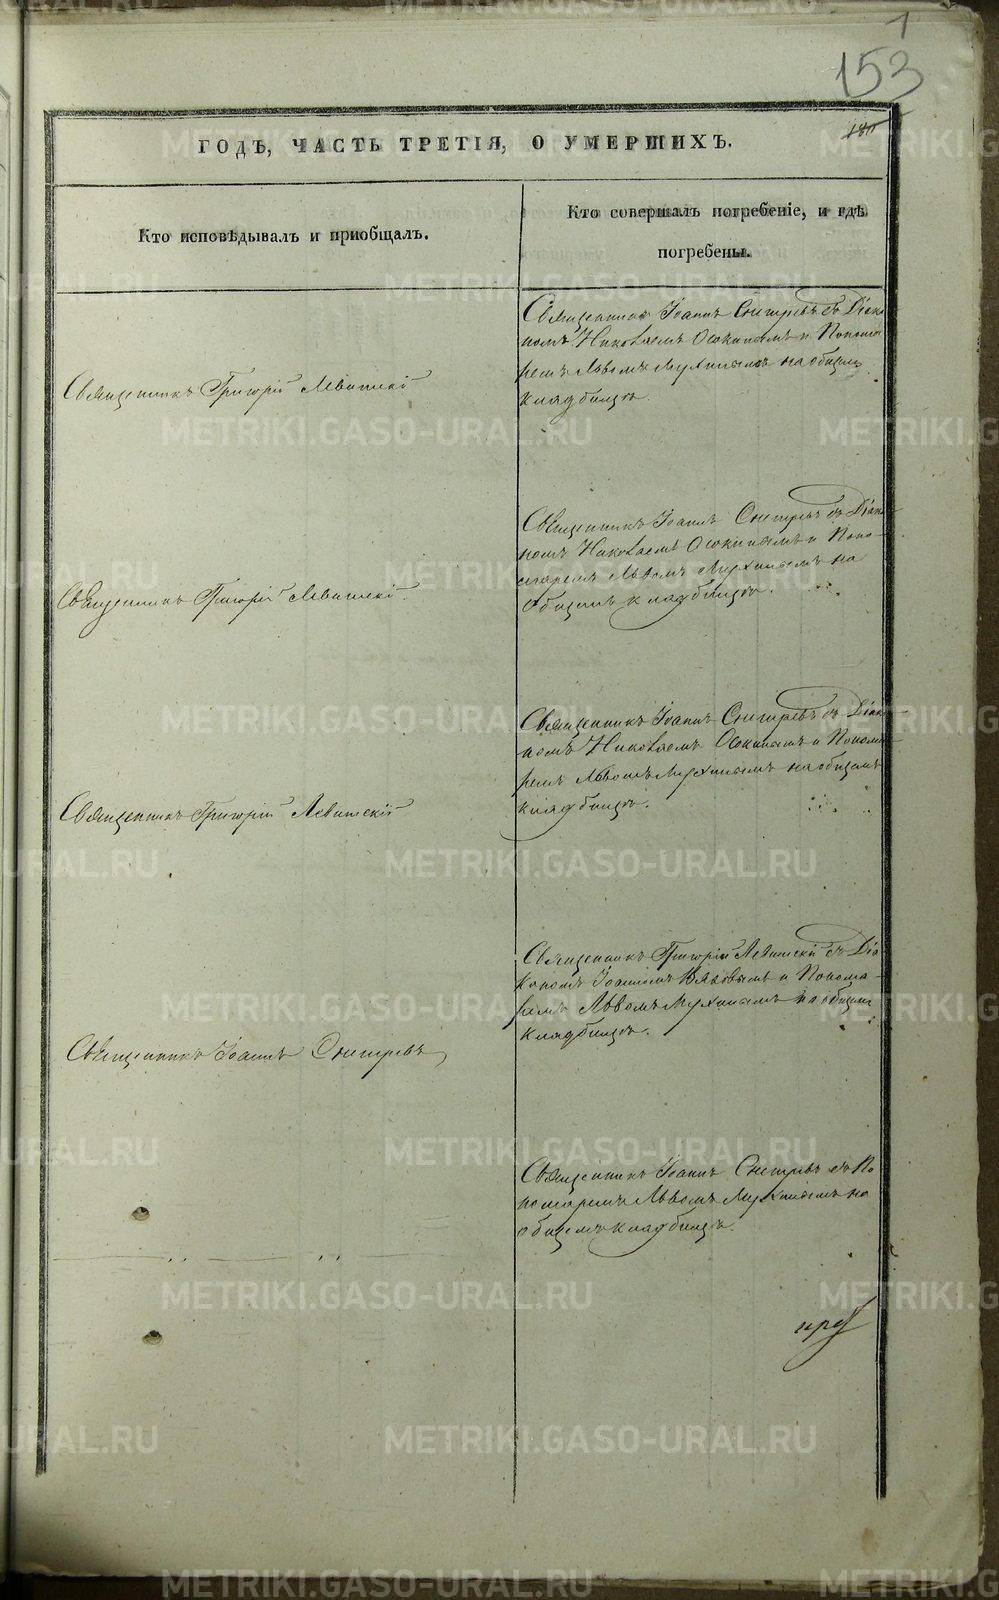 1
153
180
ГОДЪ, ЧАСТЬ ТРЕТІЯ, О УМЕРШИХЪ.
Кто исповѣдывалъ и пріобщалъ.
Кто совершалъ погребеніе, и гдѣ
погребены.
Священникъ Григорій Левитскій
Священникъ Іоаннъ Снегиревъ съ Діако
номъ Николаемъ Осокинымъ и Понома
ремъ Львомъ на общемъ
кладбищѣ.
Священникъ Григорій Левитскій.
Священникъ Іоаннъ Снегиревъ съ Діако
номъ Николаемъ Осокинымъ и Поно-
маремъ Львомъ на
общемъ кладбищѣ.
Священникъ Григорій Левитскій
Священникъ Іоаннъ Снегиревъ съ Діако
номъ Николаемъ Осокинымъ и Понома
ремъ Львомъ на общемъ
кладбищѣ.
Священникъ Іоаннъ Снегиревъ
Священникъ Григорій Левитскій съ Діа
кономъ Іоанномъ и Понома-
ремъ Львомъ на общемъ
кладбищѣ.
Священникъ Іоаннъ Снегиревъ съ По
номаремъ Львомъ на
общемъ кладбищѣ.
METRIKI.GASO-URAL.RU